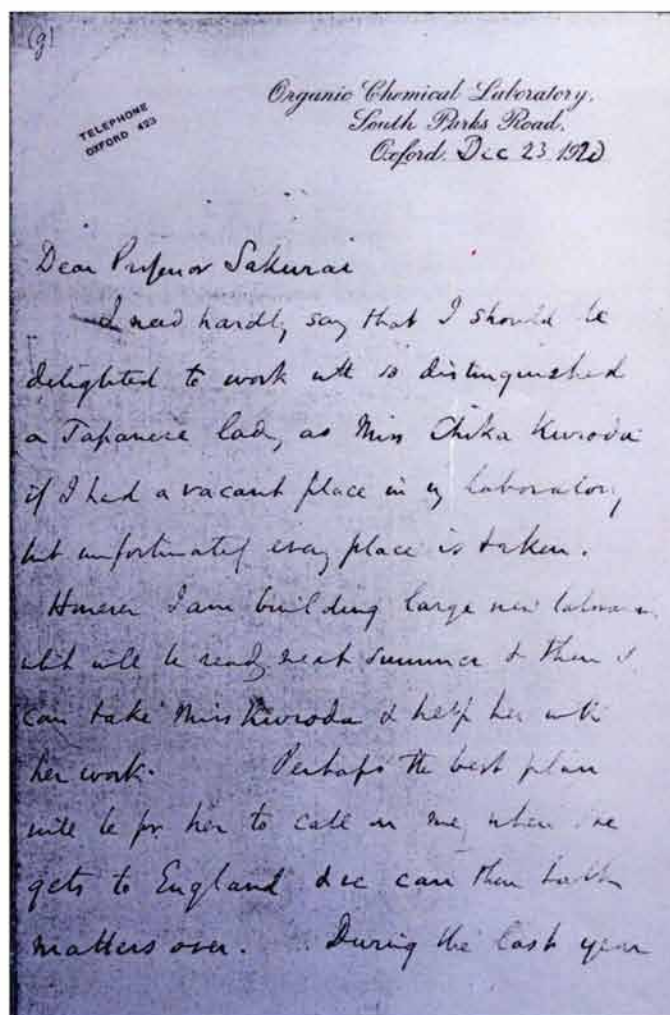 (g)
TELEPHONE
OXFORD 423
Organic Chemical Laboratory,
South Parks Road,
Oxford. Dec 23 1920
Dear Professor Sakurai
I need hardly say that I should be
delighted to work with so distinguished
a Japanese lady as Miss Chika Kuroda
if I had a vacant place in my laboratory
but unfortunately every place is taken.
However I am building large new
which will be ready next summer & then I
can take Miss Kuroda & help her with
her work. Perhaps the best plan
will be for her to call on me when she
gets to England & we can then talk
matters over. During the last year